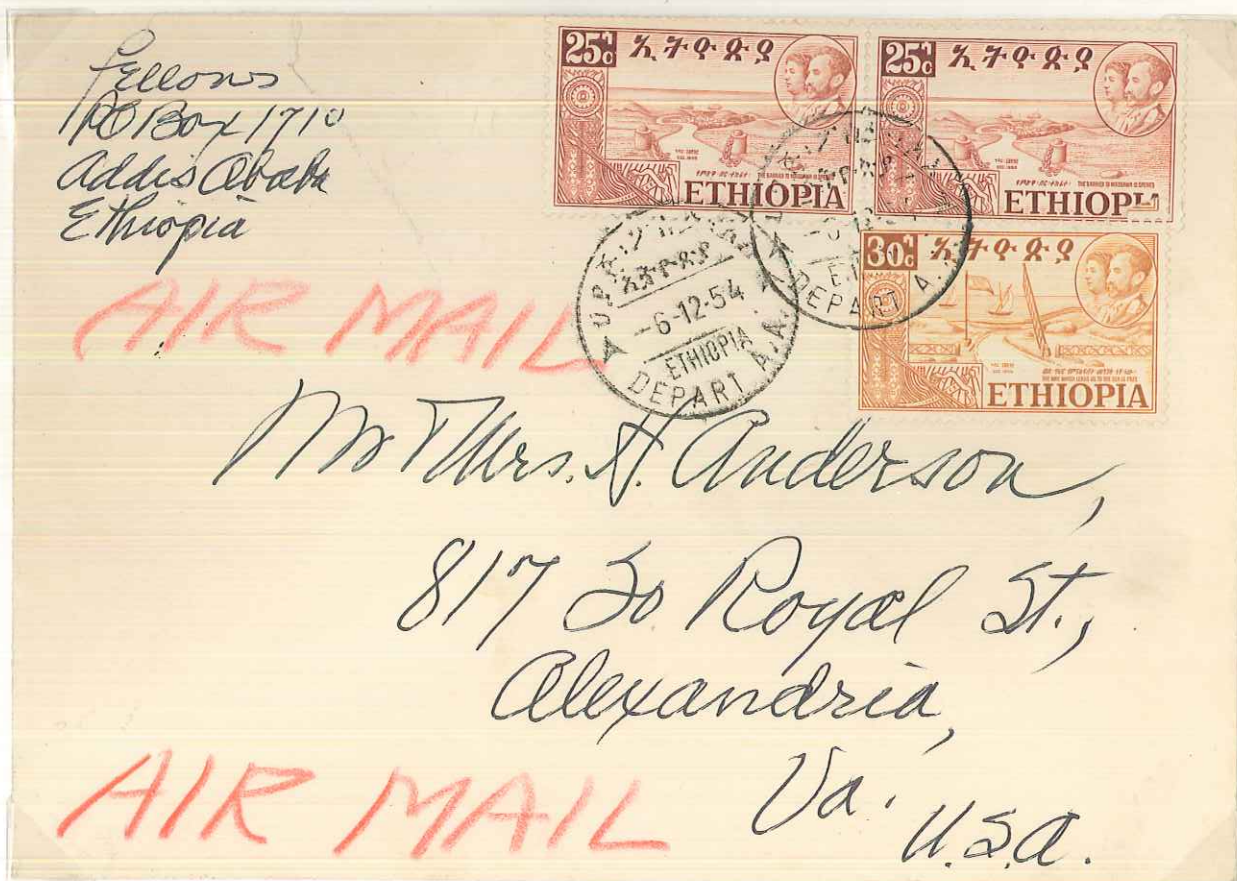 Fellows
PO Box 1710
Addis Ababa
Ethiopia
25c ኢትዮጵያ
ETHIOPIA
25c ኢትዮጵያ
ETHIOPIA
30c ኢትዮጵያ
ETHIOPIA
ኢትዮጵያ
-6-12-54
ETHIOPIA
DEPART A.A.
DEPART A.
AIR MAIL
Mr & Mrs. H. Anderson,
817 So Royal St.,
Alexandria,
Va.
U.S.A.
AIR MAIL